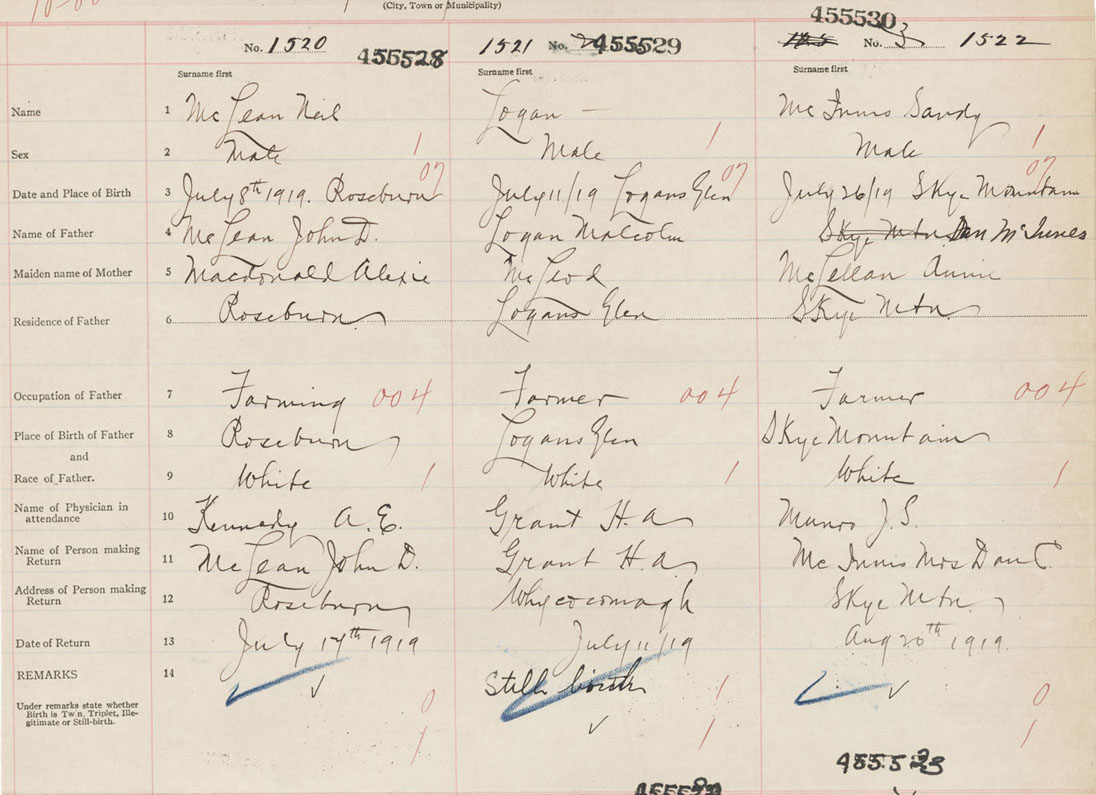 (City, Town or Municipality)
No. 1520 455528 1521 No. 455529 455530 No. 3 1522
Surname first Surname first Surname first
Name 1 McLean Neil Logan — McInnis Sandy
Sex 2 Male 1 Male 1 Male 1
07 07 07
Date and Place of Birth 3 July 8th 1919. Roseburn July 11/19 Logans Glen July 26/19 Skye Mountain
Name of Father 4 McLean John D. Logan Malcolm Skye Mtn Dan McInnes
Maiden name of Mother 5 Macdonald Alexie McLeod McLellan Annie
Residence of Father 6 Roseburn Logans Glen Skye Mtn
Occupation of Father 7 Farming 004 Farmer 004 Farmer 004
Place of Birth of Father 8 Roseburn Logans Glen Skye Mountain
and
Race of Father. 9 White 1 White 1 White 1
Name of Physician in
attendance 10 Kennedy A. E. Grant H. A Munro J. S.
Name of Person making
Return 11 McLean John D. Grant H. A McInnis Mrs Dan C.
Address of Person making
Return 12 Roseburn Whycocomagh Skye Mtn
Date of Return 13 July 17th 1919 July 11/19 Aug 20th 1919.
REMARKS 14 Still birth
Under remarks state whether
Birth is Twin, Triplet, Ille-
gitimate or Still-birth.
0 1 0
1 1 1